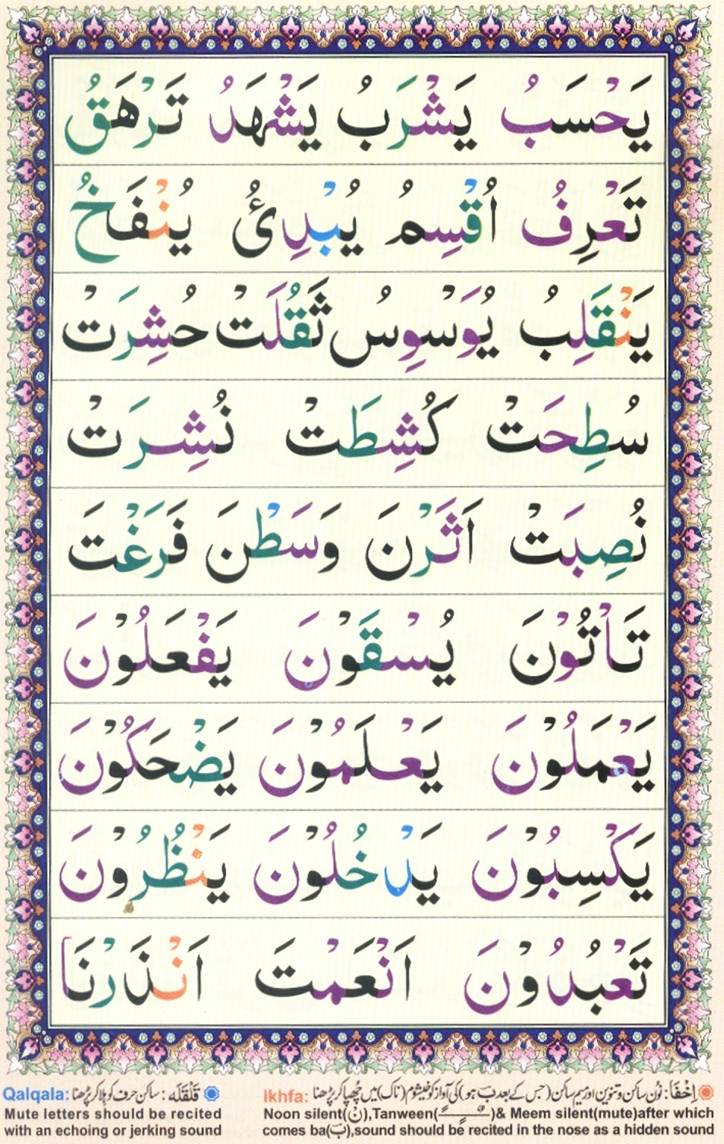 يَحْسَبُ يَشْرَبُ يَشْهَدُ تَرْهَقُ
تَعْرِفُ اُقْسِمُ يُبْدِئُ يُنْفَخُ
يَنْقَلِبُ يُوَسْوِسُ ثَقُلَتْ حُشِرَتْ
سُطِحَتْ كُشِطَتْ نُشِرَتْ
نُصِبَتْ اَثَرْنَ وَسَطْنَ فَرَغْتَ
تَاْتُوْنَ يُسْقَوْنَ يَفْعَلُوْنَ
يَعْمَلُوْنَ يَعْلَمُوْنَ يَضْحَكُوْنَ
يَكْسِبُوْنَ يَدْخُلُوْنَ يَنْظُرُوْنَ
تَعْبُدُوْنَ اَنْعَمْتَ اَنْذَرْنَا
Ikhfa: اِخْفَا: نون ساکن و تنوین اور میم ساکن (جس کے بعد ب ہو) کی آواز کو خیشوم (ناک) میں چُھپا کر پڑھنا
Noon silent(نْ),Tanween(ـًـٍـٌ)& Meem silent(mute)after which
comes ba(بَ),sound should be recited in the nose as a hidden sound
Qalqala: قَلْقَلَه: ساکن حرف کو ہلا کر پڑھنا
Mute letters should be recited
with an echoing or jerking sound